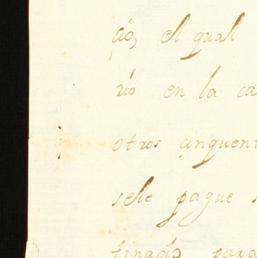 ció, el qual
rio en la ca
otros cinquent
sele pague s
tinado para